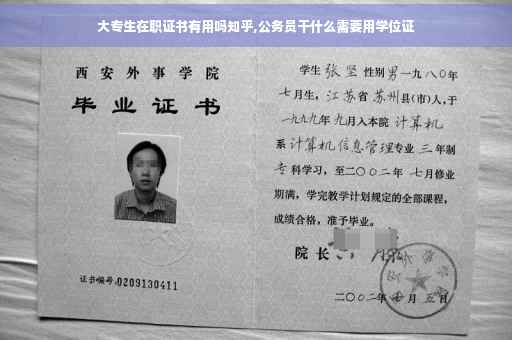 大专生在职证书有用吗知乎,公务员干什么需要用学位证
西安外事学院
毕业证书
证书编号:0209130411
学生 张坚 性别 男 一九八〇年
七月生,江苏省 苏州县(市)人,于
一九九九年 九月入本院 计算机
系 计算机信息管理专业 三 年制
专 科学习,至二〇〇二年 七月修业
期满,学完教学计划规定的全部课程,
成绩合格,准予毕业。
院长
二〇〇二年 七 月 五 日